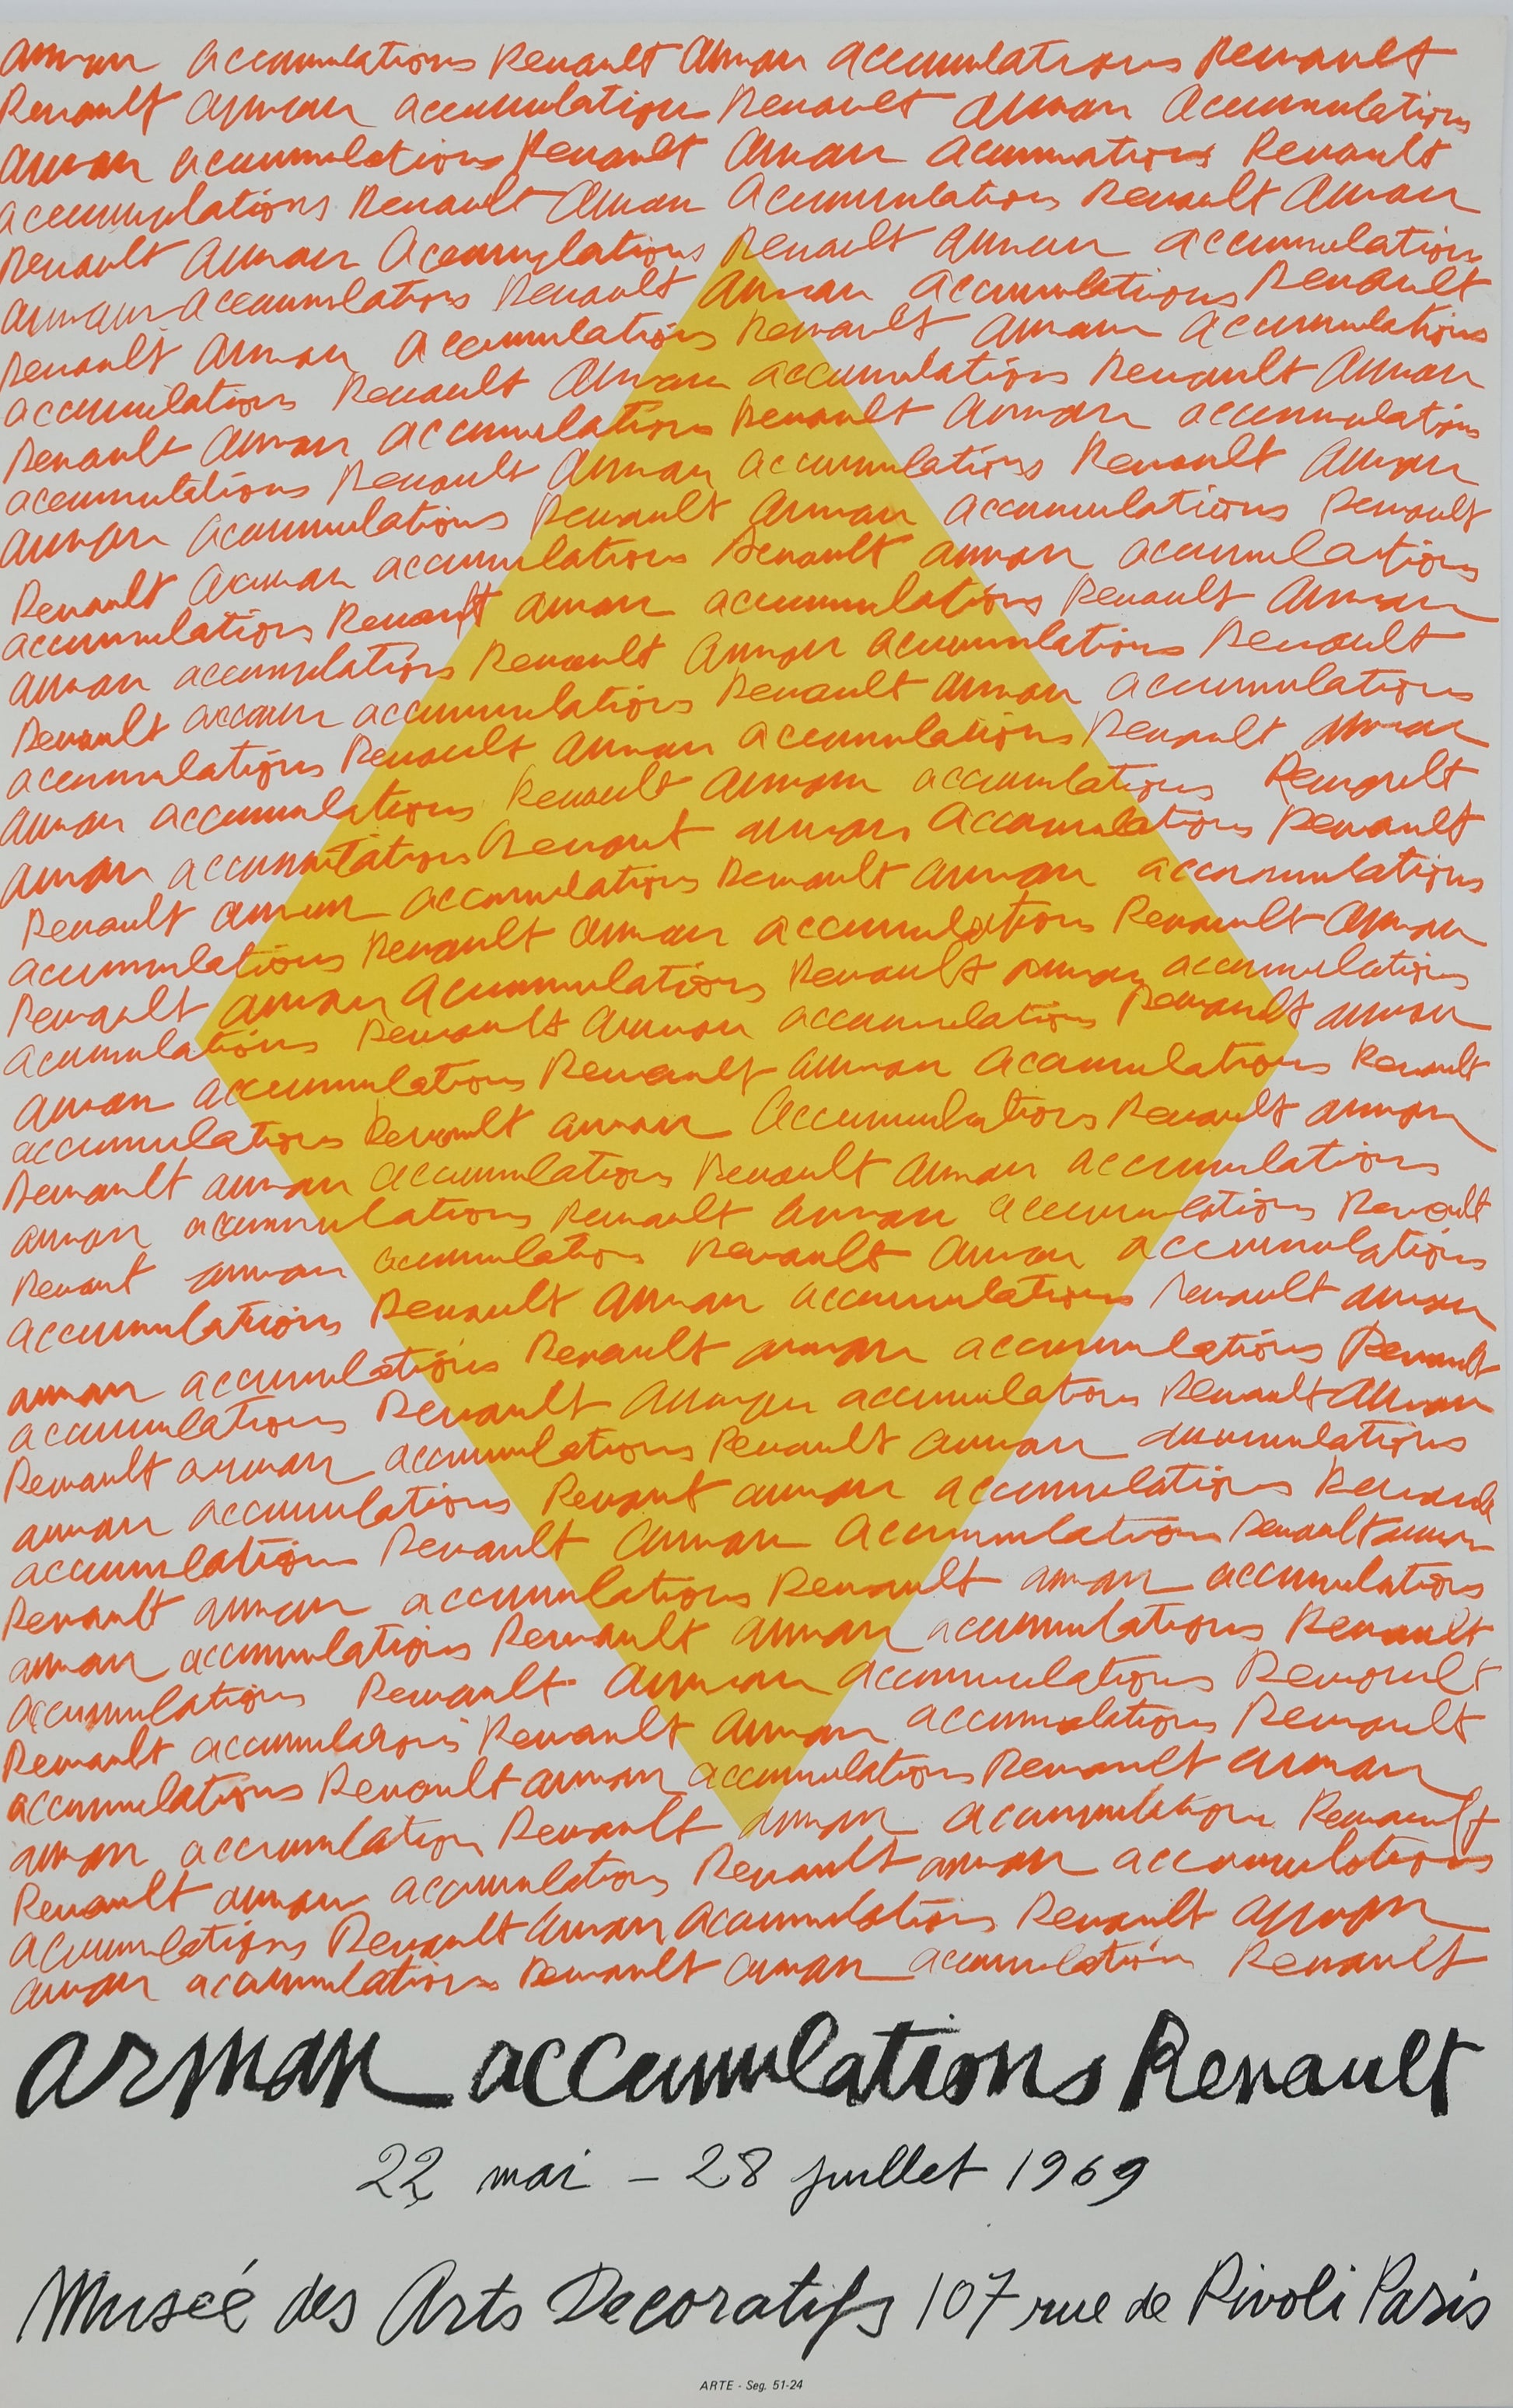 arman accumulations Renault arman accumulations Renault
Renault arman accumulation Renault arman accumulations
arman accumulations Renault arman acumuations Renault
accumulations Renault arman accumulations Renault arman
Renault arman accumulations Renault arman accumulations
arman accumulations Renault arman accumulations Renault
Renault arman accumulations Renault arman accumulations
accumulations Renault arman accumulations Renault arman
Renault arman accumulations Renault arman accumulations
accumulations Renault arman accumulations Renault arman
arman accumulations Renault arman accumulations Renault
Renault arman accumulations Renault arman accumulations
accumulations Renault arman accumulations Renault arman
arman accumulations Renault arman accumulations Renault
Renault arman accumulations Renault arman accumulations
accumulations Renault arman accumulations Renault arman
arman accumulations Renault arman accumulations Renault
arman accumulations Renaut arman accumulations Renault
Renault arman accumulations Renault arman accumulations
accumulations Renault arman accumulations Renault arman
Renault arman accumulations Renault arman accumulations
accumulations Renault arman accumulations Renault arman
arman accumulations Renault arman accumulations Renault
accumulations Renault arman accumulations Renault arman
Renault arman accumulations Renault arman accumulations
arman accumulations Renault arman accumulations Renault
Renaut arman accumulations Renault arman accumulations
accumulations Renault arman accumulations Renault arman
arman accumulations Renault arman accumulations Renault
accumulations Renault arman accumulations Renault arman
Renault arman accumulations Renault arman accumulations
arman accumulations Renaut arman accumulations Renault
accumulation Renault arman accumulations Renault arman
Renault arman accumulations Renault arman accumulations
arman accumulations Renault arman accumulations Renault
accumulations Renault arman accumulations Renault
Renault accumulations Renault arman accumulations Renault
accumulations Renault arman accumulations Renault arman
arman accumulation Renault arman accumulations Renault
Renault arman accumulations Renault arman accumulations
accumulations Renault arman accumulations Renault arman
arman accumulations Renault arman accumulation Renault
arman accumulations Renault
22 mai - 28 juillet 1969
Musée des Arts Decoratifs 107 rue de Rivoli Paris
ARTE - Seg. 51-24